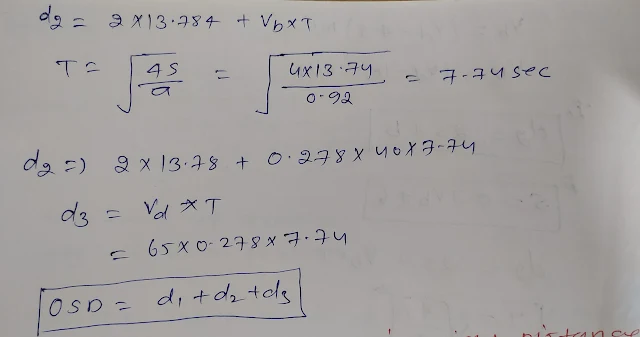 d2 = 2 x 13.784 + Vb x T
T = √(4S/a) = √(4x13.74/0.92) = 7.74 sec
d2 =) 2 x 13.78 + 0.278 x 40 x 7.74
d3 = Vd x T
= 65 x 0.278 x 7.74
OSD = d1 + d2 + d3
distance